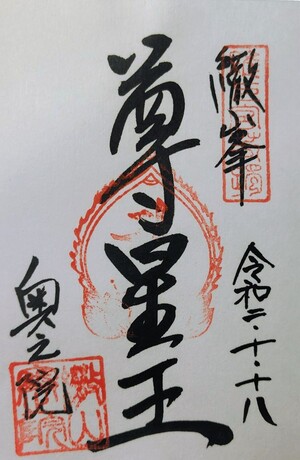 繖峯
尊星王
令和二・十・十八
奥之院